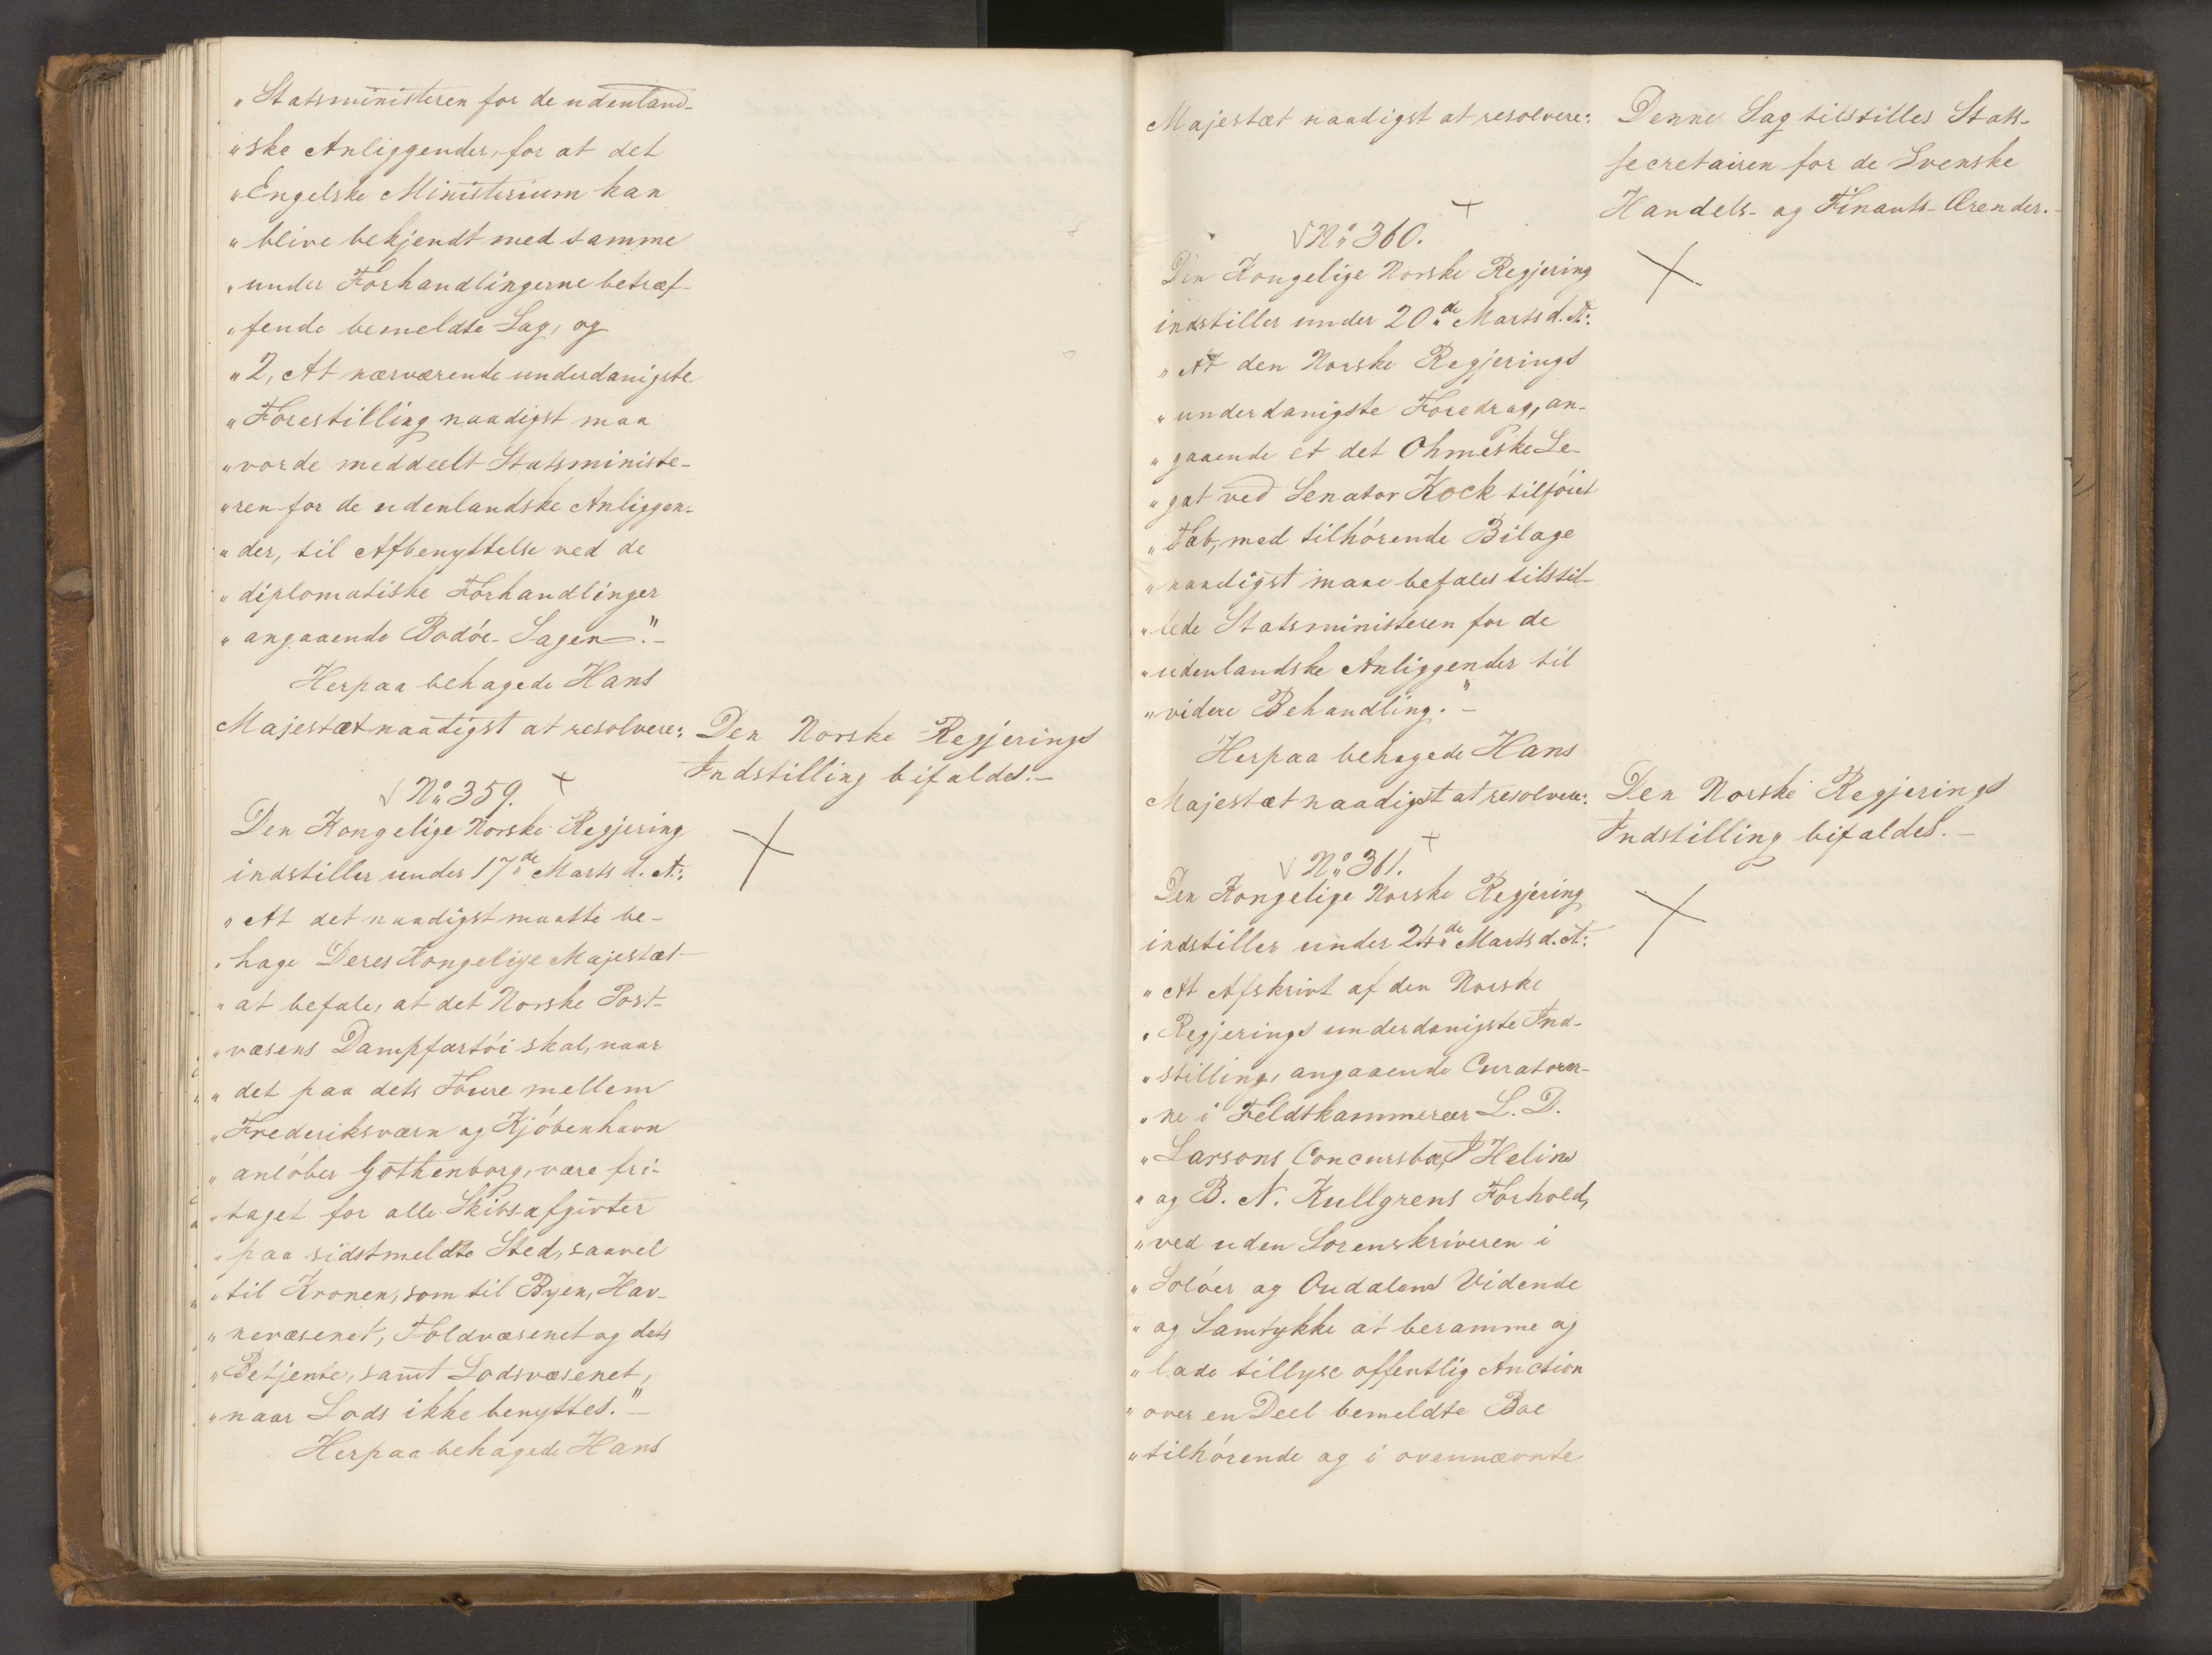 „Statsministeren for de udenland-
„ske Anliggender, for at det
„Engelske Ministerium kan
„blive bekjendt med samme
„under Forhandlingerne betræf-
„fende bemeldte Sag, og
„2, At nærværende underdanigste
„Forestilling naadigst maa
„vorde meddeelt Statsministe-
„ren for de udenlandske Anliggen-
„der, til Afbenyttelse ved de
„diplomatiske Forhandlinger
„angaaende Bodøe-Sagen."-
Herpaa behagede Hans
Majestæt naadigst at resolvere:
Den Norske Regjerings
Indstilling bifaldes.-
√ No 359. +
Den Kongelige Norske Regjering
indstiller under 17de Marts d. A:
„At det naadigst maatte be-
„hage Deres Kongelige Majestæt
„at befale, at det Norske Post-
„væsens Dampfartøi skal, naar
„det paa dets Toure mellem
„Frederiksværn og Kjøbenhavn
„anløber Gøthenborg, være fri-
„taget for alle Skibsafgivter
„paa sidstmeldte Sted, saavel
„til Kronen, som til Byen, Hav-
„nevæsenet, Toldvæsenet og dets
„Betjente, samt Lodsvæsenet,
„naar Lods ikke benyttes."-
Herpaa behagede Hans
Majestæt naadigst at resolvere:
Denne Sag tilstilles Stats-
secretairen for de Svenske
Handels- og Finants-Ærender.-
√ No 360. +
Den Kongelige Norske Regjering
indstiller under 20de Marts d. A:
„At den Norske Regjerings
„underdanigste Foredrag, an-
„gaaende et det Ohmeske Le-
„gat ved Senator Kock tilføiet
„Tab, med tilhørende Bilage
„naadigst maae befales tilstil-
„lede Statsministeren for de
„udenlandske Anliggender til
„videre Behandling."-
Herpaa behagede Hans
Majestæt naadigst at resolvere:
Den Norske Regjerings
Indstilling bifaldes.-
√ No 361. +
Den Kongelige Norske Regjering
indstiller under 24de Marts d. A:
„At Afskrivt af den Norske
„Regjerings underdanigste Ind-
„stilling, angaaende Curatorer-
„ne i Feldtkammereer L. D.
„Larsons Concursboe, Helins
„og B. N. Kullgrens Forhold,
„ved uden Sorenskriveren i
„Soløer og Oudalens Vidende
„og Samtykke at beramme og
„lade tillyse offentlig Auction
„over en Deel bemeldte Boe
„tilhørende og i ovennævnte